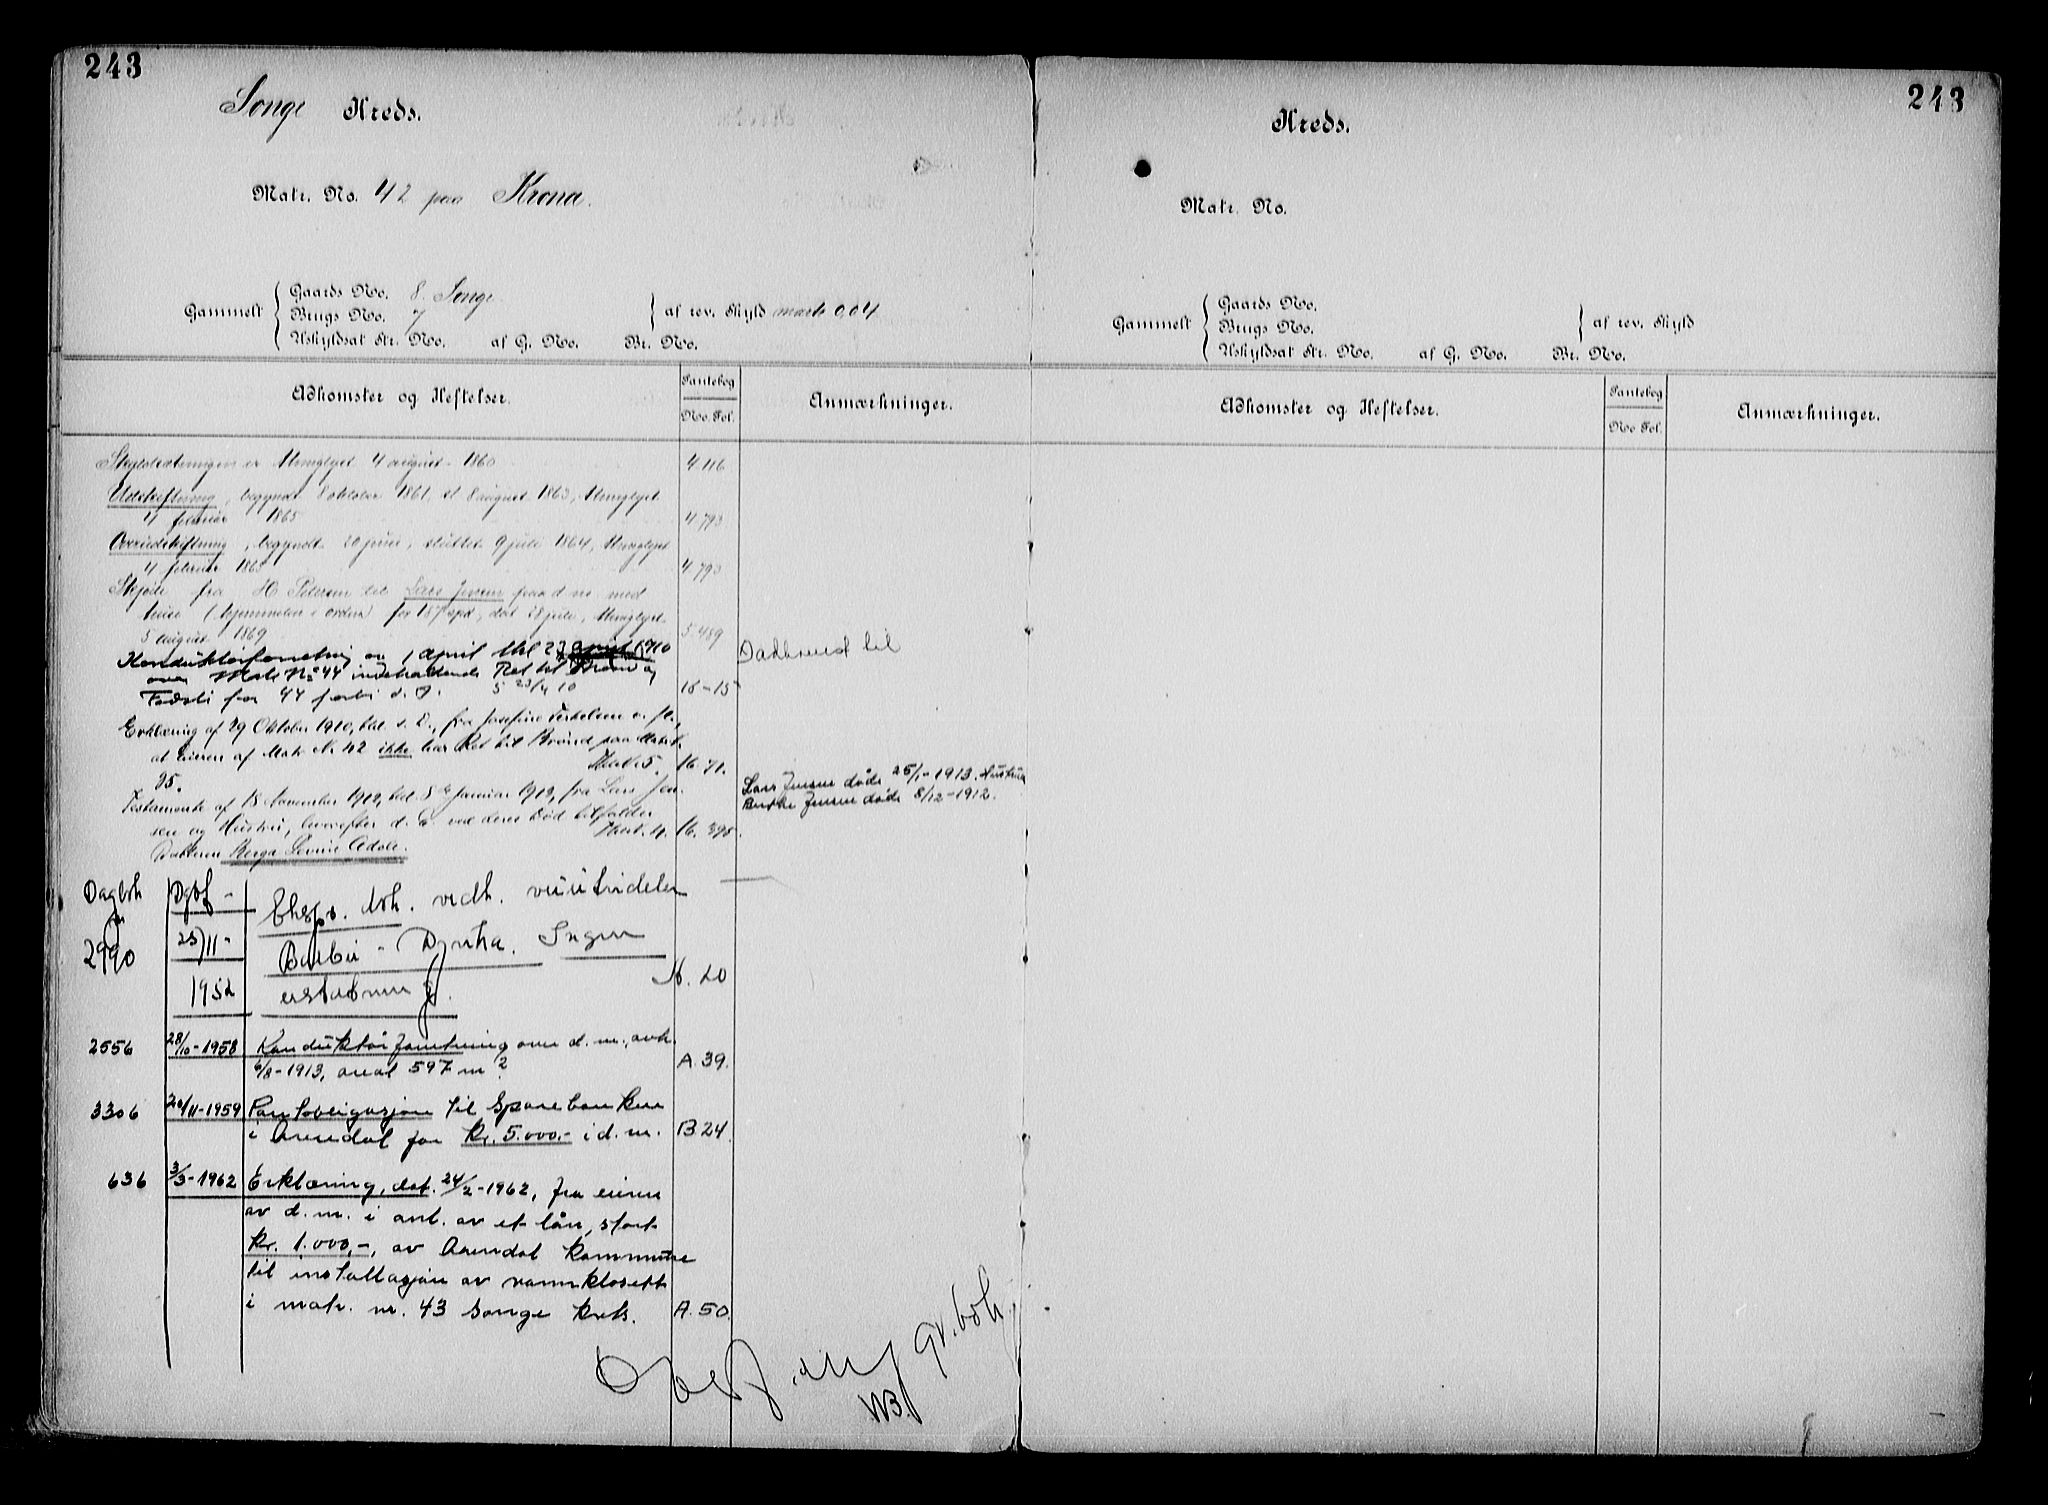 243
Songe Kreds.
Matr. No. 42 paa Krona.
Gammelt
Gaards No. 8. Songe.
Brugs No. 7
Uskyldsat Str. No. af G. No. Br. No.
af rev. Skyld mark 0,04
Adkomster og Heftelser.
Pantebog
No. Fol.
Anmærkninger.
Skyldsætningen er thinglyst 4 august 1860 4.116
Udskiftning, begyndt 8 oktober 1861, sl 8 august 1863, thinglyst
4 februar 1865 4.793
Overudskiftning, begyndt 20 juni, sluttet 9 juli 1864, thinglyst
4 februar 1865 4.793
Skjøde fra H Petersen til Lars Jensen paa d no med
huse (hjemmelen i orden) for 187 spd, dat 28 juli, thinglyst
5 august 1869 5.489
Konduktørforretning av 1 april thl 23 1910
over Matr No 44 indeholdende Ret til Brønd og
Fodsti for 44 forbi d. 16-15
Erklæring af 29 Oktober 1910, thl. s. D., fra Josefine Terkelsen o. fl.,
at Eieren af Matr. No 42 ikke har Ret til Brønd paa Matr. N.
95. Mark 5. 16. 71.
Testamente af 18 November 1912, thl. 8 Januar 1912, fra Lars Jen-
sen og Hustru, hvorefter d. E. ved deres Død tilfalder
Datteren Berga Lovise Adole. Mark. 4. 16. 395.
Dadbrent til
Lars Jensen døde 25/1-1913. Hustru
Berthe Jensen døde 8/12-1912.
Dagbok nr
2990
Dgbf-
25/11-
1952
Eksp. dok. vedk.
Barbu - Dyvika. Ingen
erstatning. A. 20
2556 28/10-1958 Konduktørforretning over d. m., avh.
6/8-1913, areal 597 m². A. 39.
3306 20/11-1959 Pantobligasjon til Sparebanken
i Arendal for kr. 5.000,- i d. m. B 24
636 3/3-1962 Erklæring, dat. 24/2-1962, fra eieren
av d. m. i anl. av et lån, stort
kr. 1.000,-, av Arendal kommune
til installasjon av vannklosett
i matr. nr. 43 Songe krets. A. 50.
Overf. ny gr.bok
NB.
243
Kreds.
Matr. No.
Gammelt
Gaards No.
Brugs No.
Uskyldsat Str. No. af G. No. Br. No.
af rev. Skyld
Adkomster og Heftelser.
Pantebog
No Fol.
Anmærkninger.